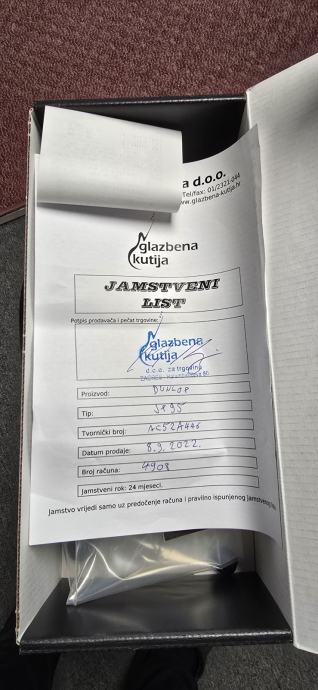 a d.o.o.
Tel/fax: 01/2321-944
www.glazbena-kutija.hr
glazbena
kutija
JAMSTVENI
LIST
Potpis prodavača i pečat trgovine:
glazbena
kutija
d.o.o. za trgovinu
ZAGREB
Proizvod: DUNLOP
Tip: JP95
Tvornički broj: AC52A446
Datum prodaje: 8.9.2022.
Broj računa: 4908
Jamstveni rok: 24 mjeseci.
Jamstvo vrijedi samo uz predočenje računa i pravilno ispunjenog jamstvenog